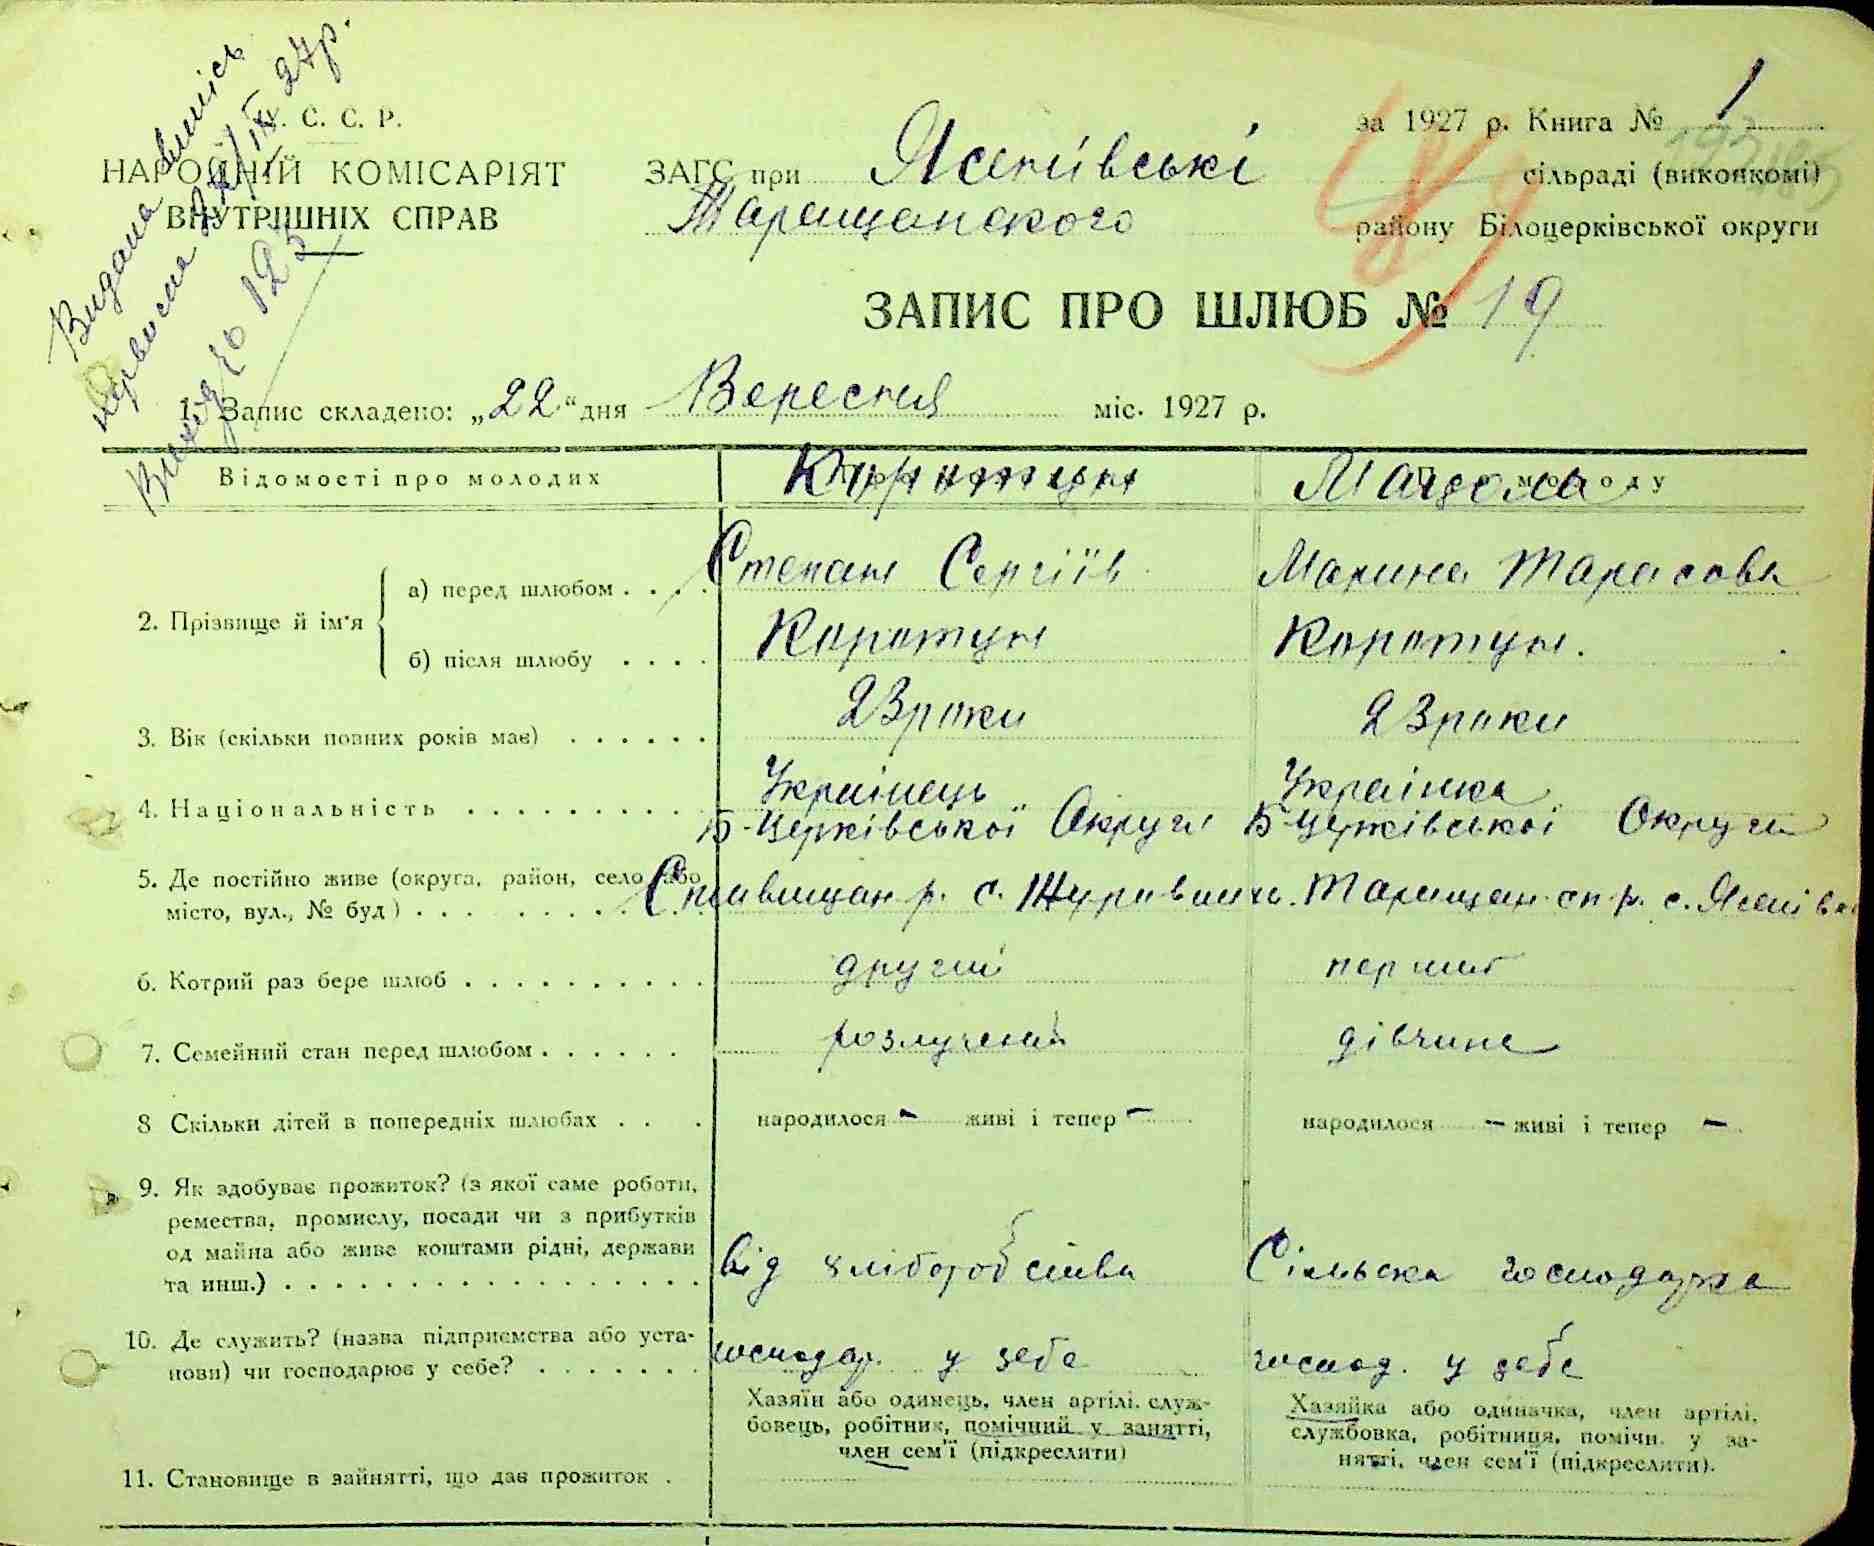 Видана випись
первісна 22/IX 27 р.
Виход № 125
У. С. С. Р.
НАРОДНІЙ КОМІСАРІЯТ
ВНУТРІШНІХ СПРАВ
за 1927 р. Книга № 1
ЗАГС при Ясенівські сільраді (виконкомі)
Таращанского району Білоцерківської округи
ЗАПИС ПРО ШЛЮБ № 19
1. Запис складено: „22“ дня Вересня міс. 1927 р.
Відомості про молодих Коротун
2. Прізвище й ім'я
а) перед шлюбом . . . . Степан Сергіїв Марина Тарасова
б) після шлюбу . . . . Коротун Коротун.
3. Вік (скільки повних років має) . . . . . . 23 роки 23 роки
4. Національність . . . . . . . . . . Українець Українка
Б-Церківської Округи Б-Церківської Округи
5. Де постійно живе (округа, район, село або
місто, вул., № буд) . . . . . . . . . Ставищан р. с. Таращан р. с. Ясенівка
6. Котрий раз бере шлюб . . . . . . . . . . другий перший
7. Семейний стан перед шлюбом . . . . . . розлучений дівчина
8 Скільки дітей в попередніх шлюбах . . . народилося - живі і тепер - народилося - живі і тепер -
9. Як здобуває прожиток? (з якої саме роботи,
ремества, промислу, посади чи з прибутків
од майна або живе коштами рідні, держави
та инш.) . . . . . . . . . . . . . . . . . від хліборобства Сільська господарка
10. Де служить? (назва підприємства або уста-
нови) чи господарює у себе? . . . . . . . господар. у себе господ. у себе
Хазяїн або одинець, член артілі, служ-
бовець, робітник, помічний у занятті,
член сем'ї (підкреслити)
Хазяйка або одиначка, член артілі,
службовка, робітниця, помічн. у за-
нятті, член сем'ї (підкреслити).
11. Становище в зайнятті, що дає прожиток .